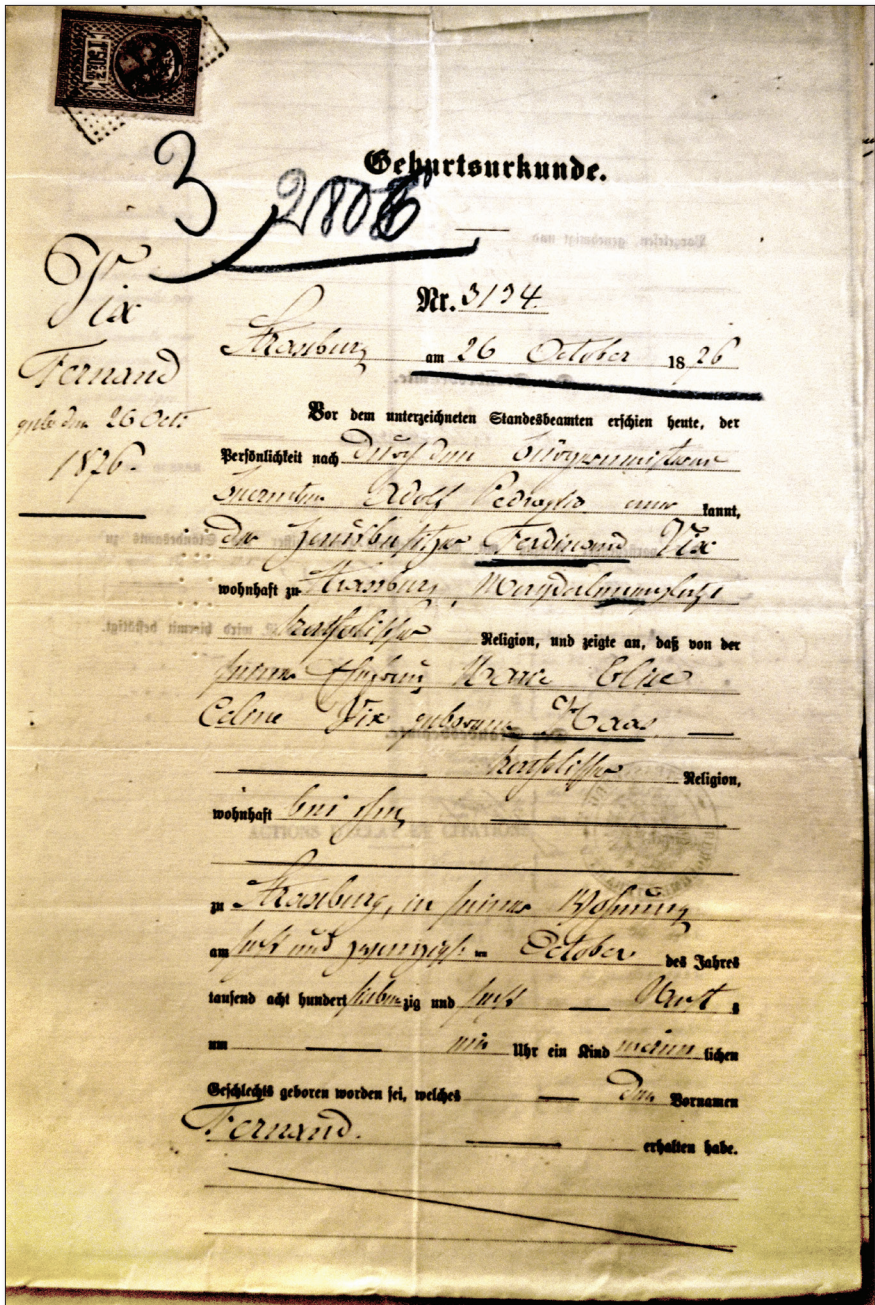 Geburtsurkunde.
3
2806
Nr. 3134.
Vix
Fernand
geb. den 26 Oct.
1876.
Strasburg am 26 October 1876
Vor dem unterzeichneten Standesbeamten erschien heute, der
Persönlichkeit nach durch den
Adolf kannt,
der Hausbesitzer Ferdinand Vix
wohnhaft zu Strasburg, Magdalenenplatz
katholischer Religion, und zeigte an, daß von der
seiner Ehefrau Marie Elise
Celine Vix geborene Haas
katholischer Religion,
wohnhaft bei ihm,
zu Strasburg, in seiner Wohnung
am sechs und zwanzigsten October des Jahres
tausend acht hundert siebenzig und sechs
um ein Uhr ein Kind männlichen
Geschlechts geboren worden sei, welches den Vornamen
Fernand. erhalten habe.
ACTIONS CITATIONS